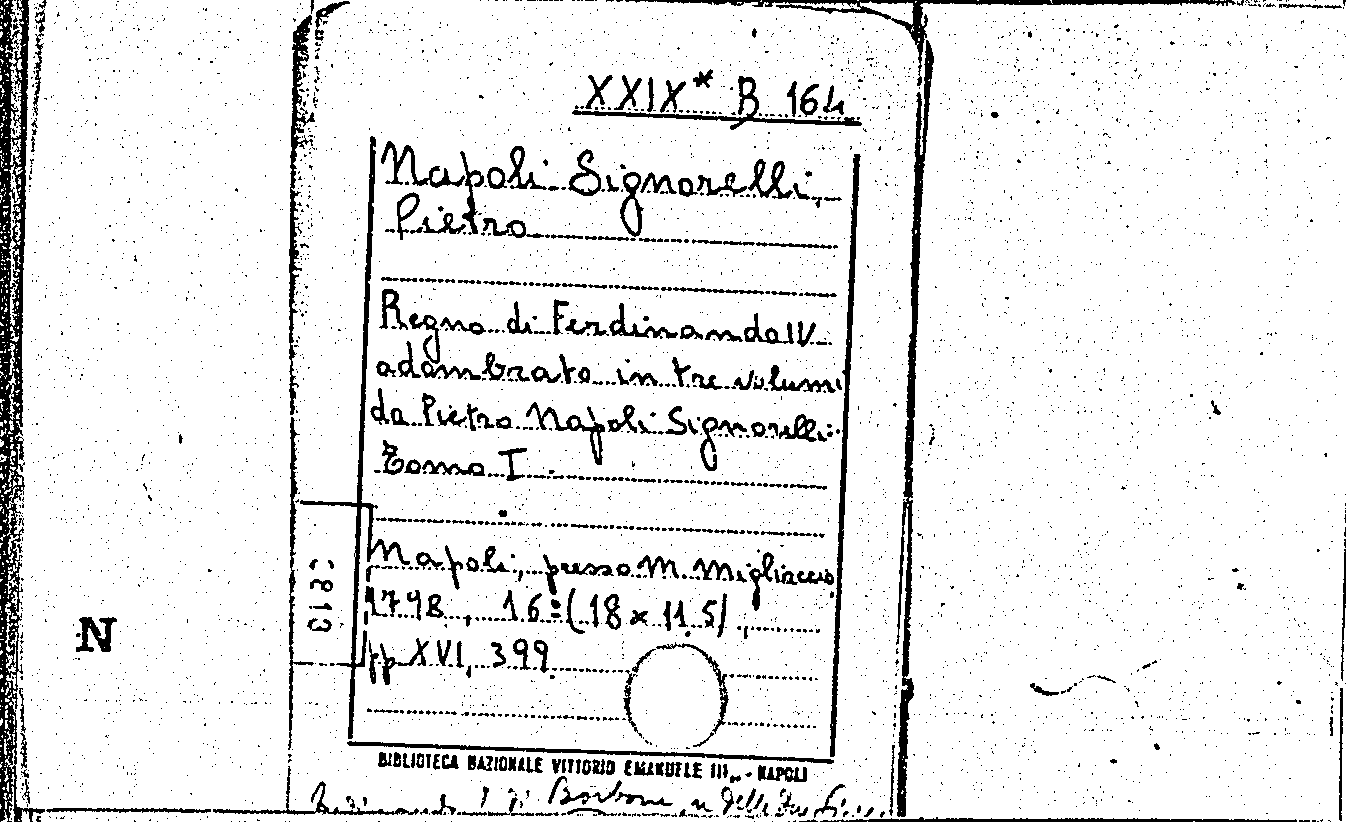 XXIX* B 164
Napoli Signorelli,
Pietro
Regno di Ferdinando IV
adombrato in tre volumi
da Pietro Napoli Signorelli:
Tomo I.
Napoli, presso M. Migliaccio,
1798, 16º (18 x 11.5),
pp XVI, 399.
N
BIBLIOTECA NAZIONALE VITTORIO EMANUELE III - NAPOLI
Ferdinando I di Borbone, re delle Due